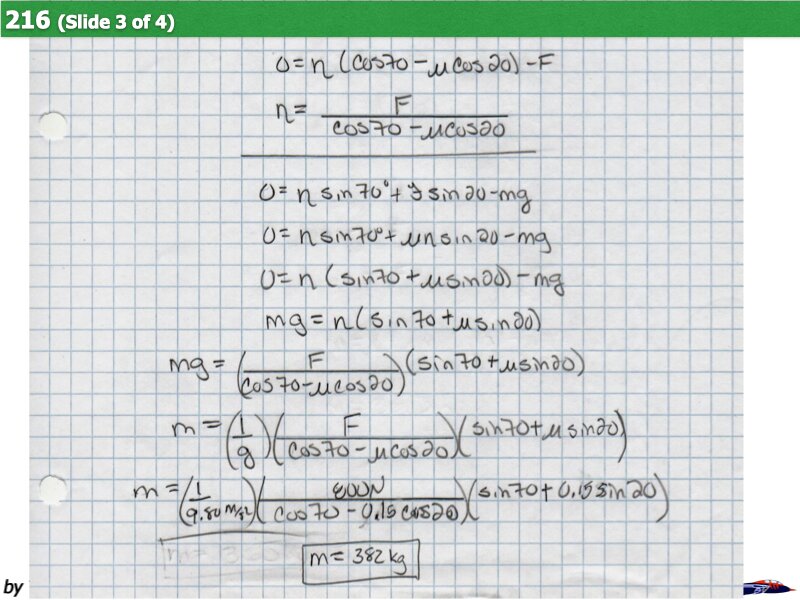 216 (Slide 3 of 4)
0 = n (cos70 - μcos20) - F
n = F / (cos70 - μcos20)
0 = n sin70° + f sin20 - mg
0 = n sin70° + μn sin20 - mg
0 = n (sin70 + μsin20) - mg
mg = n (sin70 + μsin20)
mg = (F / (cos70 - μcos20)) (sin70 + μsin20)
m = (1/g) (F / (cos70 - μcos20)) (sin70 + μsin20)
m = (1 / 9.80 m/s²) (800N / (cos70 - 0.15cos20)) (sin70 + 0.15sin20)
m = 382 kg
by